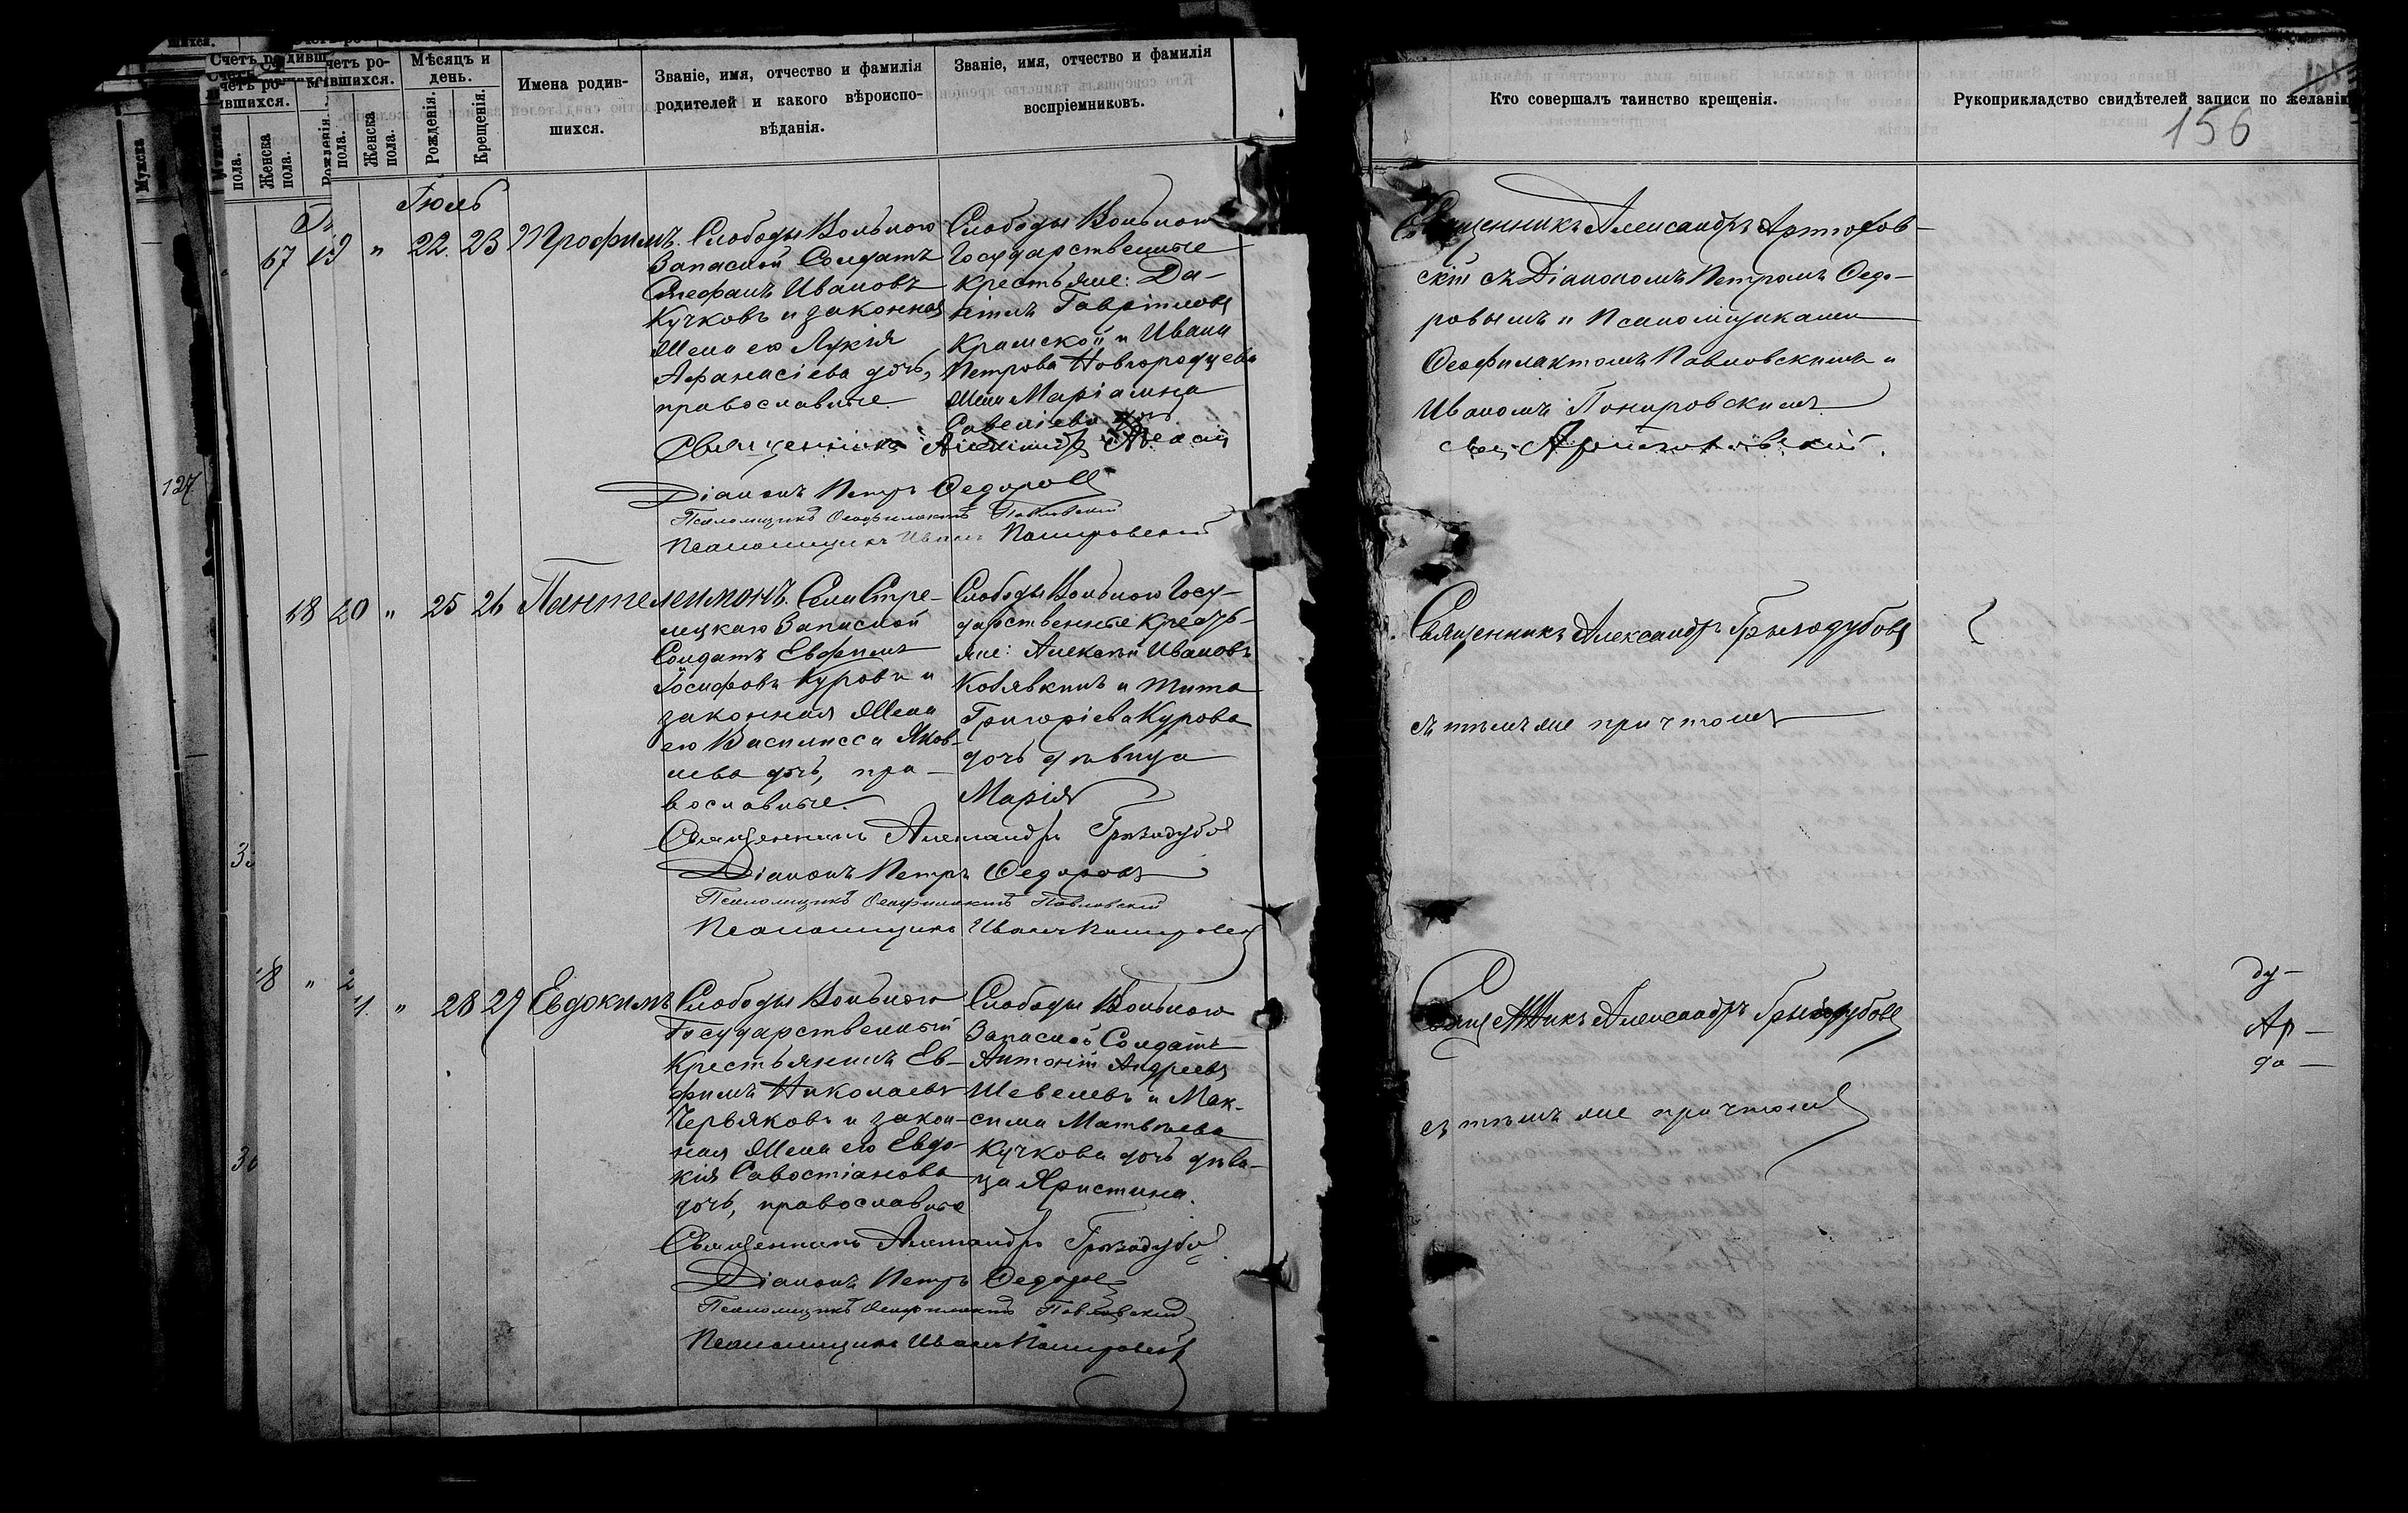 Счетъ ро-
дившихся.
Мѣсяцъ и
день.
Имена родив-
шихся.
Званіе, имя, отчество и фамилія
родителей и какого вѣроиспо-
вѣданія.
Званіе, имя, отчество и фамилія
воспріемниковъ.
Женска
пола.
Рожденія.
Крещенія.
Кто совершалъ таинство крещенія.
Рукоприкладство свидѣтелей записи по желанію
156
127
Іюль
19 " 22. 23 Трофимъ.
Слободы Вольного
Запасной Солдатъ
Стефанъ Ивановъ
Кучковъ и законная
жена его Лукія
Афанасіева дочь,
православные.
Слободы Вольного
Государственные
крестьяне: Да-
ніилъ Гавріиловъ
Крамской и Ивана
Петрова Новгородцева
жена Маріамна
Савеліева дочь
Священникъ
Діаконъ Петръ Федоровъ
Псаломщикъ Феофилактъ Павловскій
Псаломщикъ Иванъ Понировскій
Священникъ Александръ
скій съ Діакономъ Петромъ Федо-
ровымъ и Псаломщиками
Феофилактомъ Павловскимъ и
Иваномъ Понировскимъ.
20 " 25 26 Пантелеимонъ.
Села Стре-
лецкаго Запасной
Солдатъ Евфимъ
Іосифовъ Куровъ и
законная жена
его Василисса Яков-
лева дочь, пра-
вославные.
Слободы Вольного Госу-
дарственные кресть-
яне: Алексѣй Ивановъ
Кобявкинъ и Тита
Григоріева Курова
дочь дѣвица
Марія
Священникъ Александръ Грызодубовъ
Діаконъ Петръ Федоровъ
Псаломщикъ Феофилактъ Павловскій
Псаломщикъ Иванъ Понировскій
Священникъ Александръ Грызодубовъ
съ тѣмъ же причтомъ
21. " 28 29 Евдокимъ
Слободы Вольного
Государственный
Крестьянинъ Ев-
фимъ Николаевъ
Червяковъ и закон-
ная жена его Евдо-
кія Савостіанова
дочь, православные
Слободы Вольного
Запасной Солдатъ
Антоній Андреевъ
Шевелевъ и Мак-
сима Матвѣева
Кучкова дочь дѣви-
ца Христина.
Священникъ Александръ Грызодубовъ
Діаконъ Петръ Федоровъ
Псаломщикъ Феофилактъ Павловскій
Псаломщикъ Иванъ Понировскій
Священникъ Александръ Грызодубовъ
съ тѣмъ же причтомъ
ду-
Ар-
до-